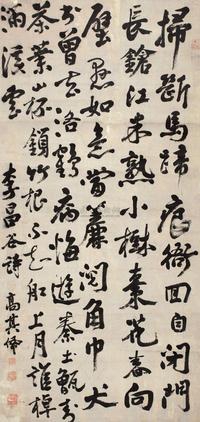 掃斷馬蹄痕衙回自閉門
長鎗江米熟小樹棗花春向
壁懸如意當簾閱角巾犬
書曾去洛鶴病悔遊秦土甑封
茶葉山杯鎖竹根不知船上月誰棹
滿溪雲
李昌谷詩
高其佩